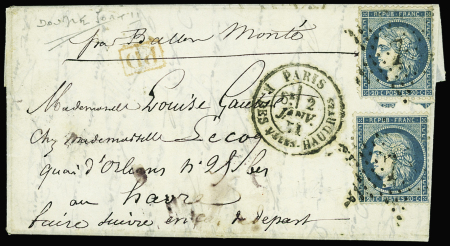 DOUBLE PORT
par Ballon Monté
PD
PARIS
5E 2
JANV.
71
R. DES VLES-HAUDRTES
REPUB. FRANC.
20 C. POSTES 20 C.
REPUB. FRANC.
20 C. POSTES 20 C.
Mademoiselle Louise
Chez mademoiselle Lecoq
quai d'Orléans No 25 bis
au havre
faire suivre en de depart